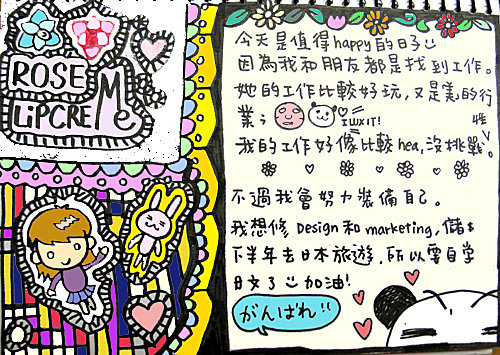 ROSE
LiPCREMe
今天是值得happy的日子
因為我和朋友都是找到工作。
她的工作比較好玩,又是美的行
業;
我的工作好像比較hea,沒挑戰性。
不過我會努力裝備自己。
我想修Design和marketing,儲$
下半年去日本旅遊,所以要自学
日文了 加油!
がんばれ!!